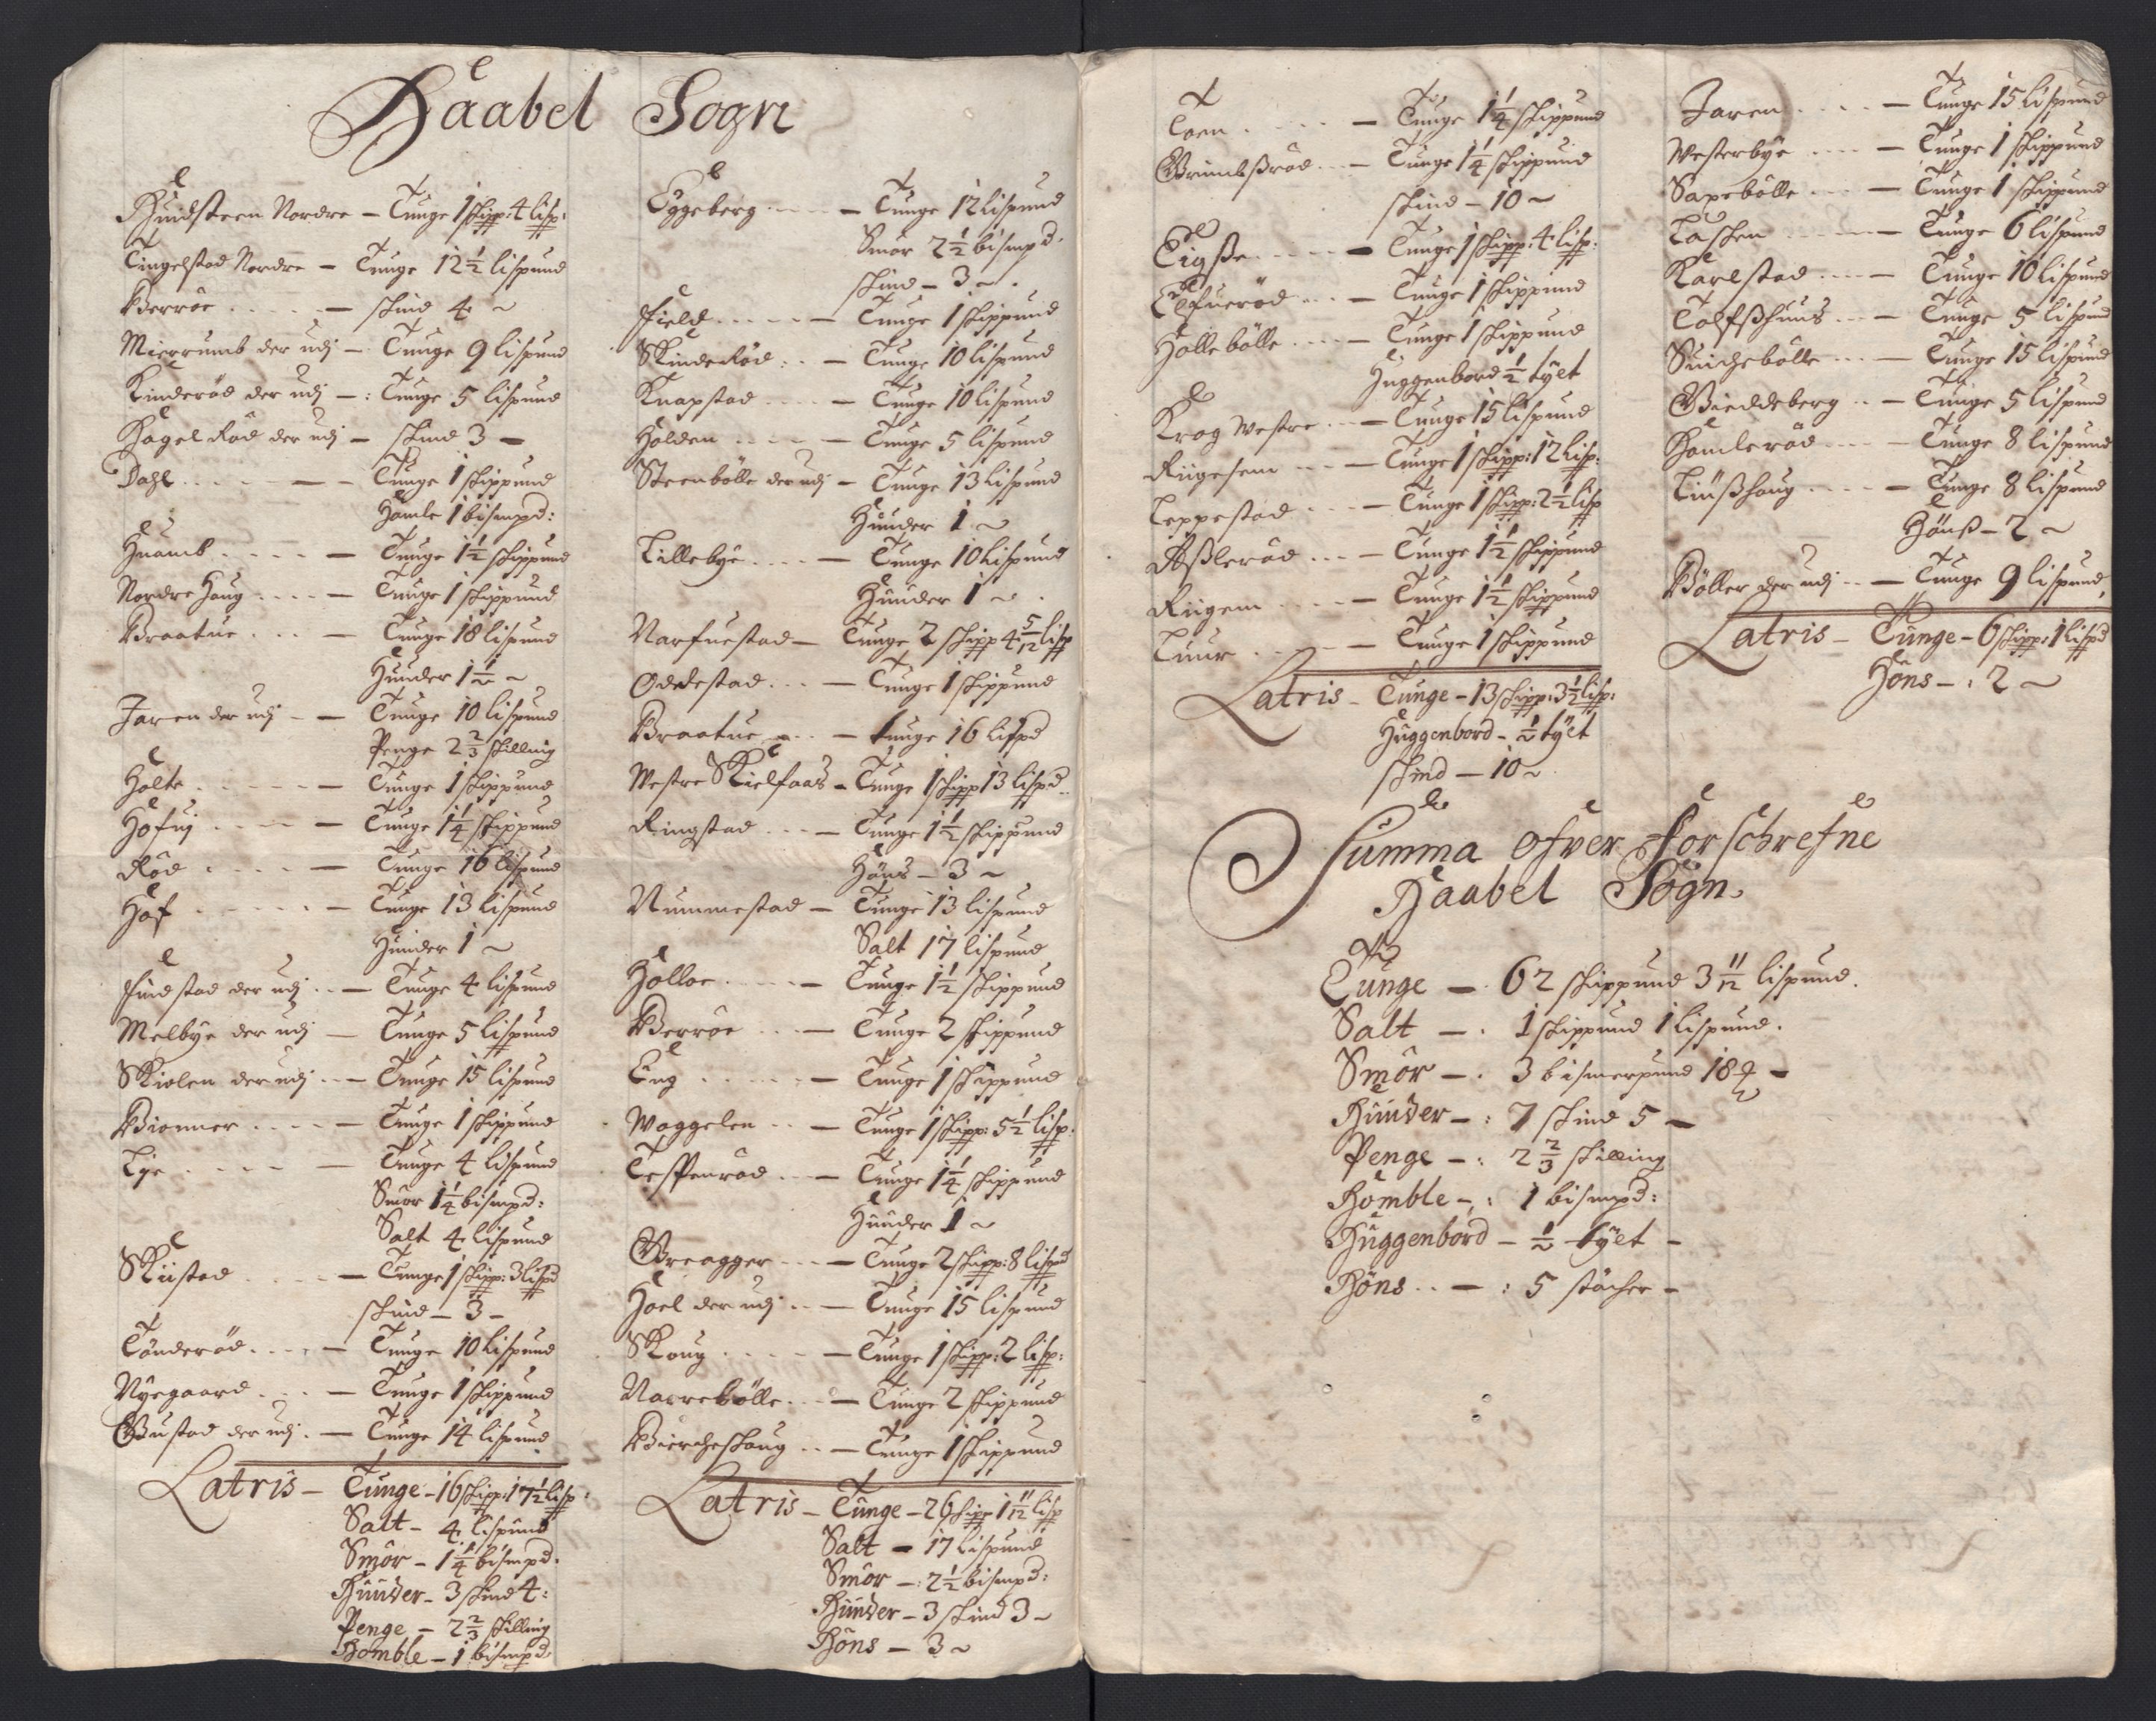 Haabel Sogn
Huidsteen Nordre – Tunge 1 skipp: 4 lisp:
Tingelstad Nordre – Tunge 12 1/2 lispund
Berröe ..... – skind 4 ~
Mierrumb der udj – Tunge 9 lispund
Kinderöd der udj – : Tunge 5 lispund
Hagel Röd der udj – skind 3 –
Dahl ..... – – Tunge 1 skippund
Homle 1 bismpd:
Huamb ..... – Tunge 1 1/2 skippund
Nordre Haug .... – Tunge 1 skippund
Braatue ... – Tunge 18 lispund
Hunder 1 1/2 ~
Jaren der udj – – Tunge 10 lispund
Penge 2 2/3 skilling
Holte ..... – Tunge 1 skippund
Hofuj .... – Tunge 1 1/4 skippund
Röd .... – Tunge 16 lispund
Hof ..... – Tunge 13 lispund
Hunder 1 ~
Findstad der udj .. – Tunge 4 lispund
Melbye der udj – Tunge 5 lispund
Skiolen der udj .. – Tunge 15 lispund
Bionner .... – Tunge 1 skippund
Lye .... – Tunge 4 lispund
Smör 1 1/4 bismpd:
Salt 4 lispund
Skiistad .... – Tunge 1 skipp: 3 lispd
skind – 3 –
Tönderöd .... – Tunge 10 lispund
Nyegaard ... – Tunge 1 skippund
Gustad der udj . – Tunge 14 lispund
Latris – Tunge – 16 skipp: 17 1/2 lisp:
Salt – 4 lispund
Smör – 1 1/4 bismpd.
Hunder – 3 skind 4 :
Penge – 2 2/3 skilling
Homble – 1 bismpd.
Eggeberg .... – Tunge 12 lispund
Smör 2 1/2 bismpd.
skind – 3 ~ .
Field ..... – Tunge 1 skippund
Skinderöd .. – Tunge 10 lispund
Knapstad .... – Tunge 10 lispund
Holden .... – Tunge 5 lispund
Steenbölle der udj – Tunge 13 lispund
Hunder 1 ~
Lillebye .... – Tunge 10 lispund
Hunder 1 ~ .
Narfuestad – Tunge 2 skipp 4 5/12 lisp
Oddestad ... – Tunge 1 skippund
Braatue ... – tunge 16 lispd
Westre Kielsaas – Tunge 1 skipp 13 lispd
Ringstad ... – Tunge 1 1/2 skippund
Höns – 3 ~
Nummestad – Tunge 13 lispund
Salt 17 lispund
Holloe .... – Tunge 1 1/2 skippund
Berröe ... – Tunge 2 skippund
Eng ..... – Tunge 1 skippund
Waggelen ... – Tunge 1 skipp: 5 1/2 lisp.
Tesspenröd .. – Tunge 1 1/4 skippund
Hunder 1 ~
Greagger ... – Tunge 2 skipp: 8 lispd
Hoel der udj .. – Tunge 15 lispund
Skoug .... – Tunge 1 skipp: 2 lisp:
Narrebölle .. – Tunge 2 skippund
Biercheshaug .. – Tunge 1 skippund
Latris – Tunge – 26 skipp 1 11/12 lisp
Salt – 17 lispund
Smör – : 2 1/2 bismpd:
Hunder – 3 skind 3 ~
Höns – 3 ~
Toen .... – Tunge 1 1/4 skippund
Grimbsröd .. – Tunge 1 1/4 skippund
skind – 10 ~
Eigsse ..... – Tunge 1 skipp: 4 lisp:
Elfueröd ... – Tunge 1 skippund
Hollebölle ... – Tunge 1 skippund
Huggenbord 1/2 tylt
Krog Westre .. – Tunge 15 lispund
Riigesem ... – Tunge 1 skipp: 12 lisp.
Teppestad ... – Tunge 1 skipp: 2 1/2 lisp
Aßleröd ... – Tunge 1 1/2 skippund
Riigem .... – Tunge 1 1/2 skippund
Tuur .... – Tunge 1 skippund
Latris – Tunge – 13 skipp: 3 1/2 lisp:
Huggenbord – 1/2 tylt
skind – 10 ~
Jaren .... – Tunge 15 lispund
Westerbye .... – Tunge 1 skippund
Saxebölle ... – Tunge 1 skippund
Lasken .... – Tunge 6 lispund
Karlstad .... – Tunge 10 lispund
Tolfßhuus ... – Tunge 5 lispund
Suichebölle ... – Tunge 15 lispund
Gieddeberg .. – Tunge 5 lispund
Hamleröd .... – Tunge 8 lispund
Liußhaug .... – Tunge 8 lispund
Hönß – 2 ~
Böller der udj .. – Tunge 9 lispund
Latris – Tunge – 6 skipp: 1 lispd
Höns – : 2 ~
Summa ofver forschrefne
Haabel Sogn.
Tunge – . 62 skippund 3 11/12 lispund.
Salt – . 1 skippund 1 lispund.
Smör – . 3 bismerpund 18 ℔ –
Hunder – : 7 skind 5 –
Penge – : 2 2/3 skilling
Homble – : 1 bismpd:
Huggenbord – 1/2 tylt –
Höns .. – : 5 stöcher –